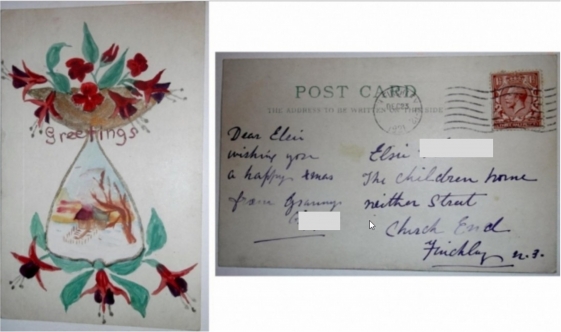 Greetings
POST CARD
THE ADDRESS TO BE WRITTEN ON THIS SIDE.
Dear Elsie
wishing you
a happy Xmas
from Grannys
Elsie
The Children home
neither Street
Church End
Finchley n.3.